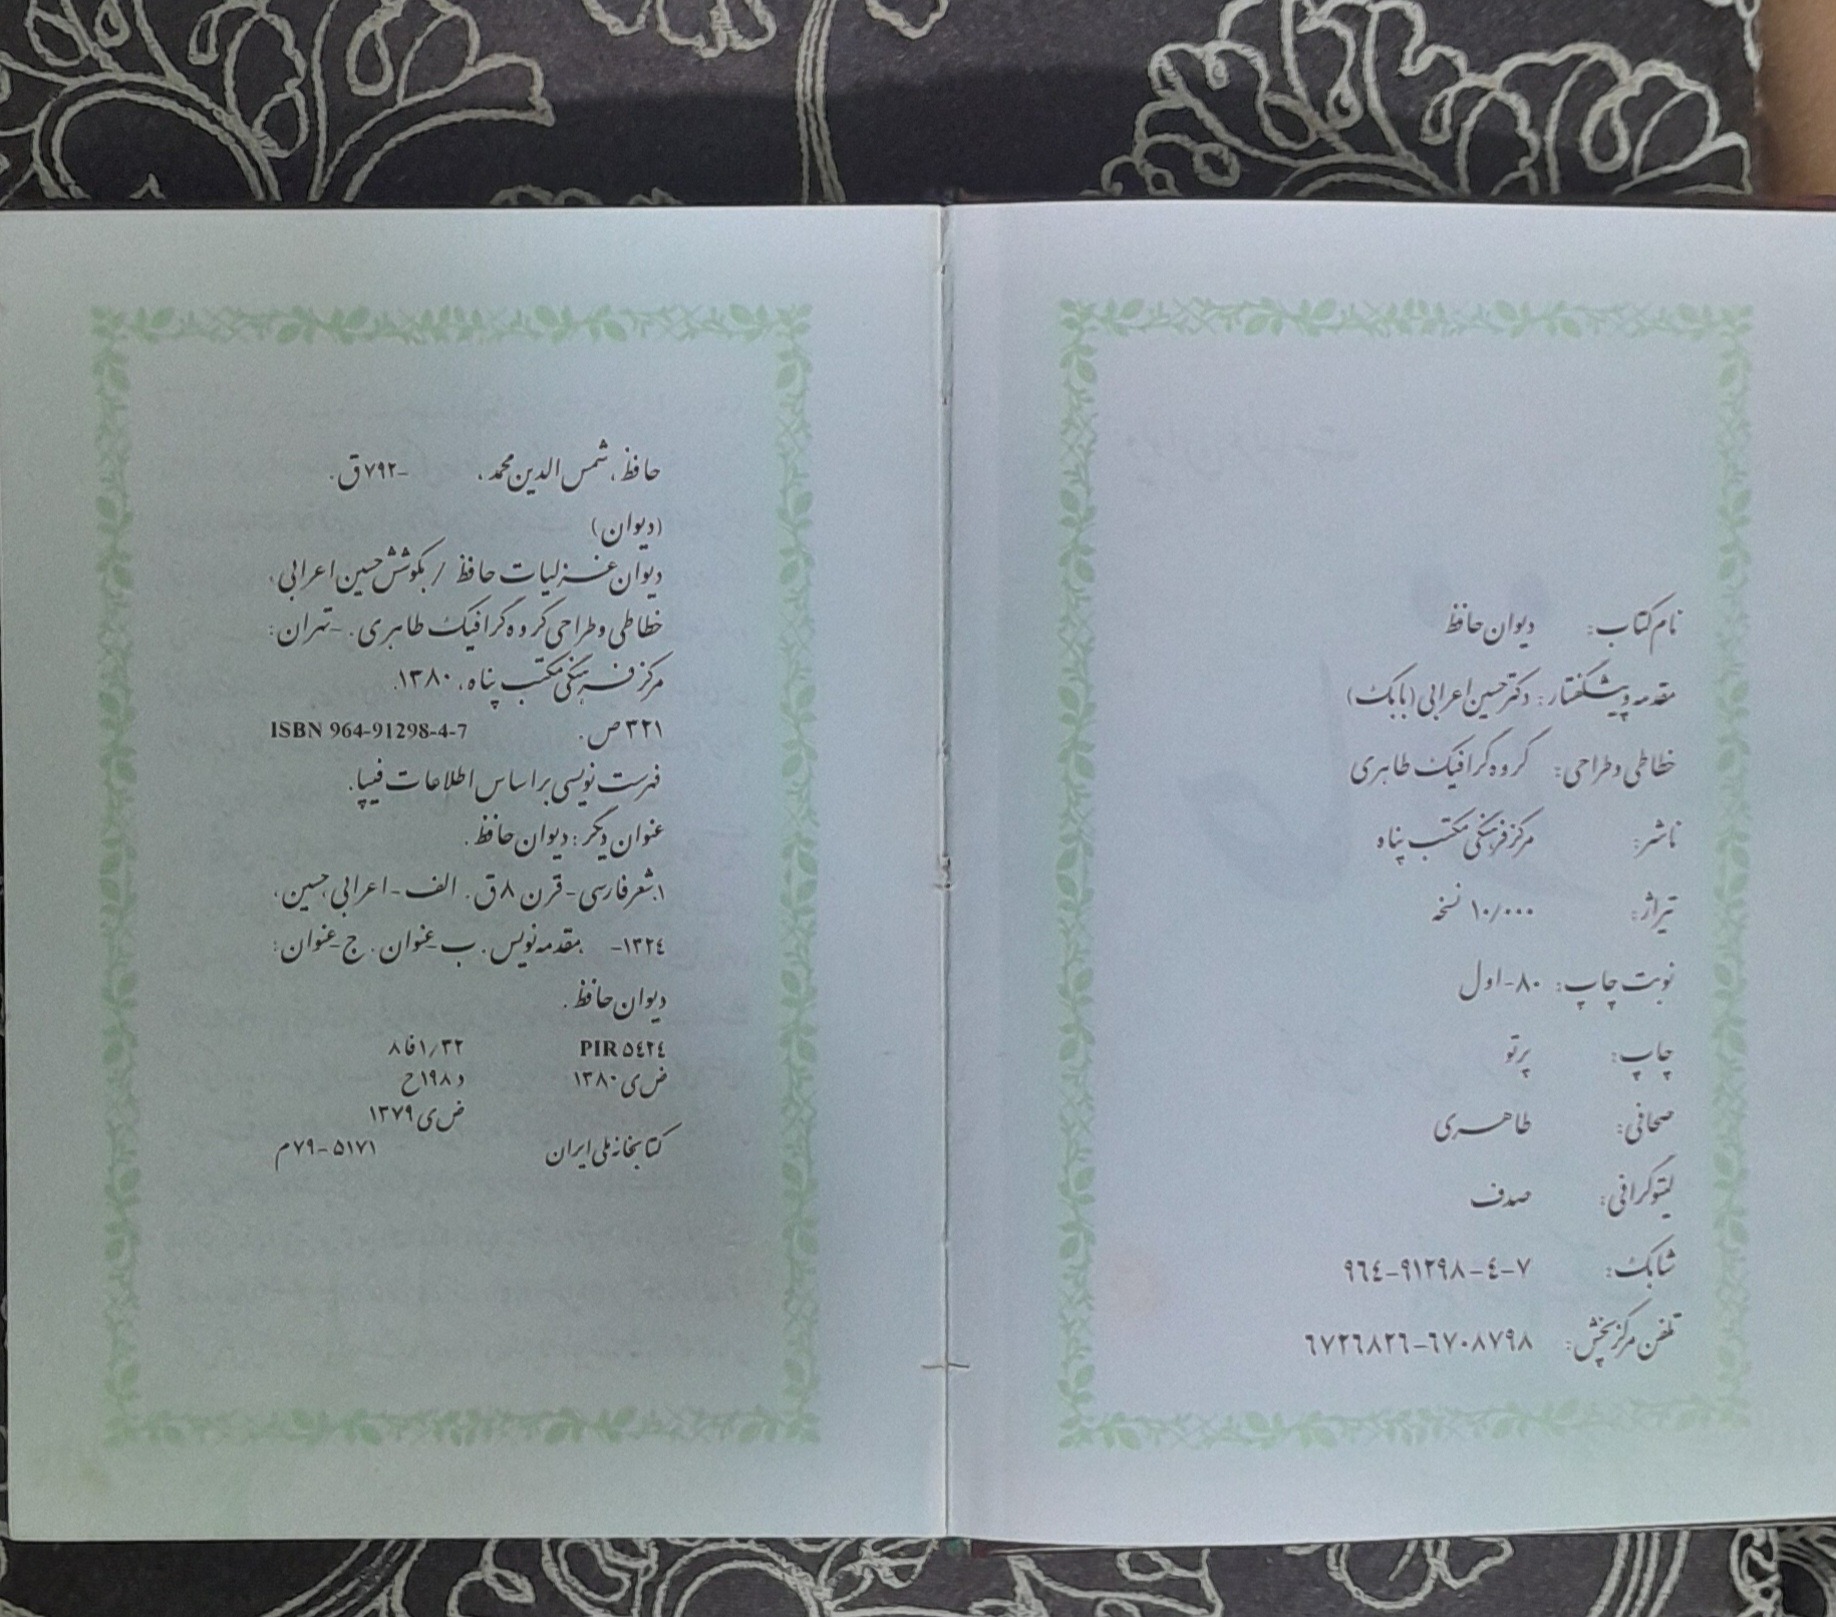 نام کتاب: دیوان حافظ
مقدمه و پیشگفتار: دکتر حسین اعرابی (بابک)
خطاطی و طراحی: گروه گرافیک طاهری
ناشر: مرکز فرهنگی مکتب پناه
تیراژ: ۱۰/۰۰۰ نسخه
نوبت چاپ: ۸۰-اول
چاپ: پرتو
صحافی: طاهری
لیتوگرافی: صدف
شابک: ۹٦٤-۹۱۲۹۸-٤-۷
تلفن مرکز پخش: ٦۷۲٦۸۲٦-٦۷۰۸۷۹۸
حافظ، شمس الدین محمد، -۷۹۲ق.
(دیوان)
دیوان غزلیات حافظ / بکوشش حسین اعرابی،
خطاطی و طراحی گروه گرافیک طاهری. -تهران:
مرکز فرهنگی مکتب پناه، ۱۳۸۰.
۳۲۱ص. ISBN 964-91298-4-7
فهرست نویسی بر اساس اطلاعات فیپا.
عنوان دیگر: دیوان حافظ.
۱.شعر فارسی-قرن ۸ق. الف-اعرابی، حسین،
۱۳۲٤- ،مقدمه نویس. ب-عنوان. ج-عنوان:
دیوان حافظ.
PIR ۵٤۲٤ ۸فا۱/۳۲
ض ی ۱۳۸۰ د۱۹۸ح
ض ی ۱۳۷۹
کتابخانه ملی ایران ۵۱۷۱-۷۹م